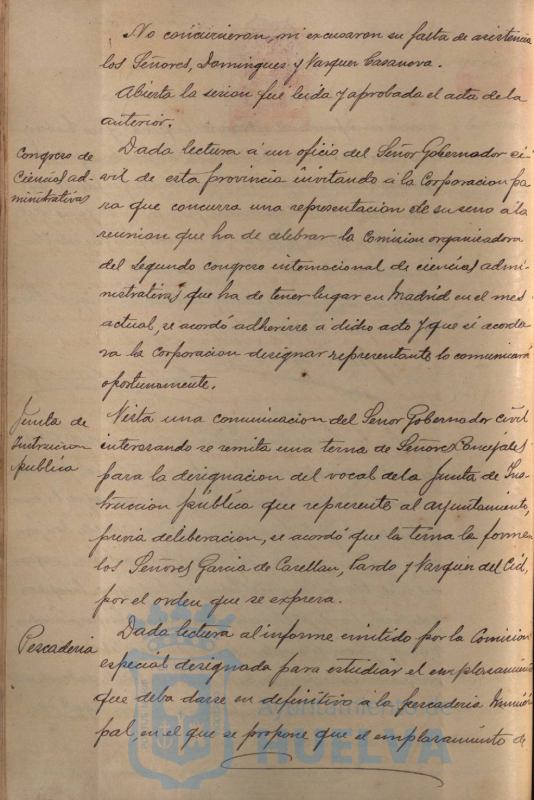 No concurrieron, ni excusaron su falta de asistencia
los Señores, Dominguez y Vazquez Casanova.
Abierta la sesion fué leida y aprobada el acta de la
anterior.
Congreso de
Ciencias ad-
ministrativas
Dada lectura á un oficio del Señor Gobernador ci-
vil de esta provincia invitando á la Corporacion pa
ra que concurra una representacion de su seno á la
reunion que ha de celebrar la Comision organizadora
del segundo congreso internacional de ciencias admi-
nistrativas que ha de tener lugar en Madrid en el mes
actual, se acordó adherirse á dicho acto y que si acorda
ra la Corporacion designar representante lo comunicará
oportunamente.
Junta de
Instruccion
pública
Vista una comunicacion del Señor Gobernador civil
interesando se remita una terna de Señores Concejales
para la designacion del vocal de la Junta de Ins-
truccion pública que represente al ayuntamiento,
previa deliberacion, se acordó que la terna la formen
los Señores Garcia de Castellan, Pardo y Vazquez del Cid,
por el orden que se expresa.
Pescaderia
Dada lectura al informe emitido por la Comision
especial designada para estudiar el emplazamiento
que deba darse en definitivo á la pescaderia Munici
pal, en el que se propone que el emplazamiento de
Ayuntamiento de
HUELVA